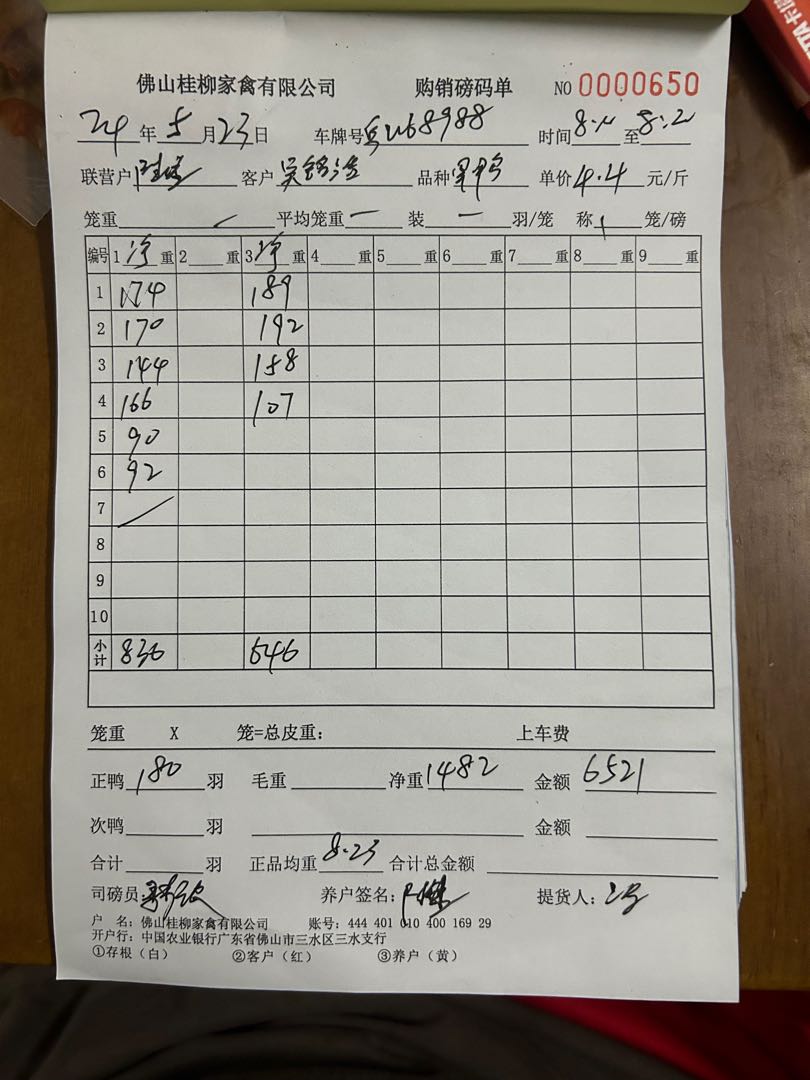 佛山桂柳家禽有限公司 购销磅码单 NO 0000650
24年5月23日 车牌号 68988 时间 8: 至 8:2
联营户 客户 吴 品种 单价 4.4 元/斤
笼重 / 平均笼重 一 装 一 羽/笼 称 笼/磅
编号 1净重 2 重 3净重 4 重 5 重 6 重 7 重 8 重 9 重
1 174 189
2 170 192
3 144 158
4 166 107
5 90
6 92
7 /
8
9
10
小计 836 646
笼重 X 笼=总皮重: 上车费
正鸭 180 羽 毛重 净重 1482 金额 6521
次鸭 羽 金额
合计 羽 正品均重 8.23 合计总金额
司磅员: 养户签名: 提货人:
户 名: 佛山桂柳家禽有限公司 账号: 444 401 010 400 169 29
开户行: 中国农业银行广东省佛山市三水区三水支行
①存根(白) ②客户(红) ③养户(黄)